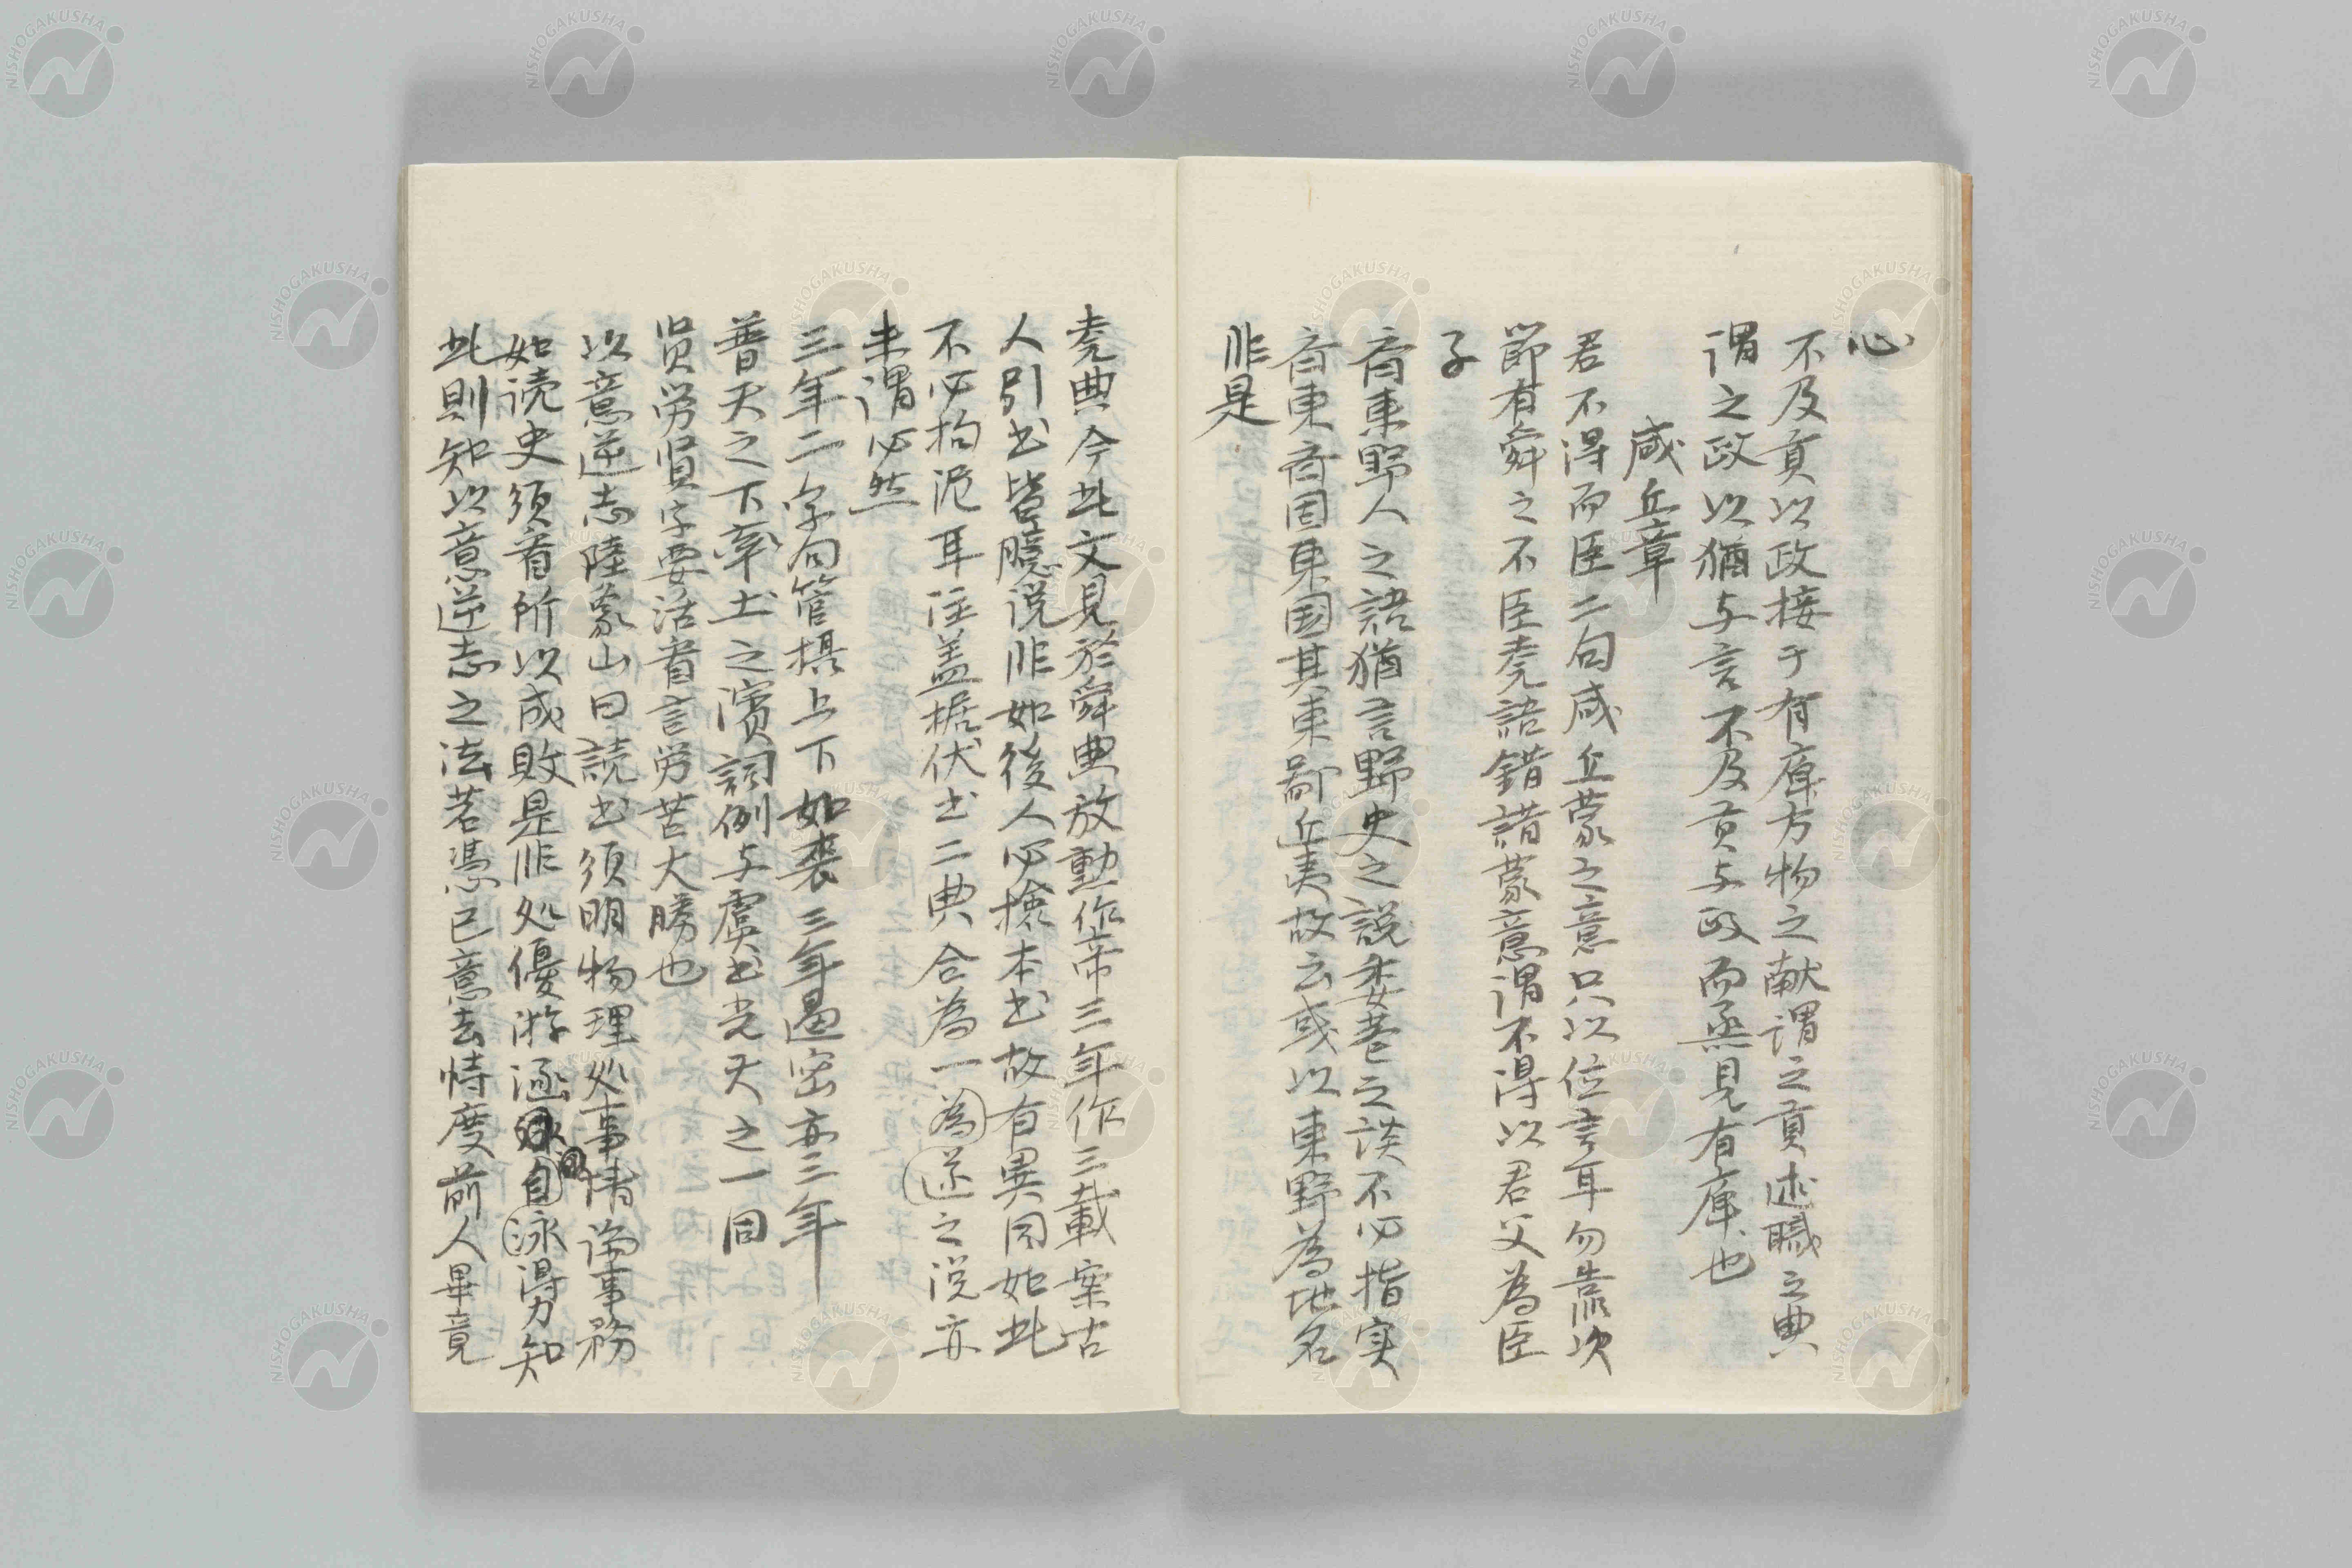 心
不及貢以政接于有庳方物之献謂之貢述職之典
謂之政以猶与言不及貢与政而亟見有庳也
咸丘章
君不得而臣二句咸丘蒙之意只以位言耳勿靠次
節有舜之不臣堯語錯諎蒙意謂不得以君父為臣
子
斉東野人之語猶言野史之説委巷之談不必指実
斉東斉国東国其東鄙丘夷故云或以東野為地名
非是
堯典今此文見於舜典放勳作帝三年作三載案古
人引书皆臆説非如後人必撿本书故有異同如此
不必拘泥耳注盖据伏书二典合為一為遂之説亦
未謂必然
三年二字句管摂上下如喪三年遏密亦三年
普天之下率土之濱詞例与虞书光天之一同
贤労贤字要活看言労苦大勝也
以意逆志陸象山曰読书须明物理処事情論事務
如読史须看所以成敗是非処優游涵泳自泳得力知
此則知以意逆志之法若憑己意去恃度前人畢竟
NISHOGAKUSHA